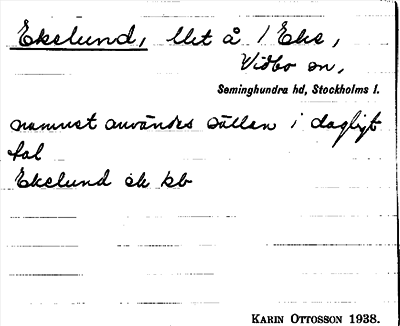 Ekelund, llet å 1 Eke,
Vidbo sn,
Seminghundra hd, Stockholms l.
namnet användes sällan i dagligt
tal
Ekelund ek kb
KARIN OTTOSSON 1938.